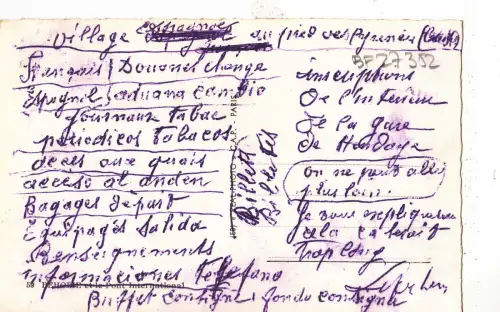 village espagnol au pied des Pyrénées
BF27382
Français } Douanes change
Espagnol } aduana cambio
Journaux Tabac
periodicos Tabacos
accès aux quais
acceso al anden
Bagages départ
Equipages Salida
Renseignements
informaciones Telefono
Buffet consigne fonda consigna
Billets
Billetes
inscriptions
de l'intérieur
de la gare
de Hendaye
on ne peut aller
plus loin.
Je vous expliquerai
cela ce serait
Trop long
59 BEHOBIE et le Pont International